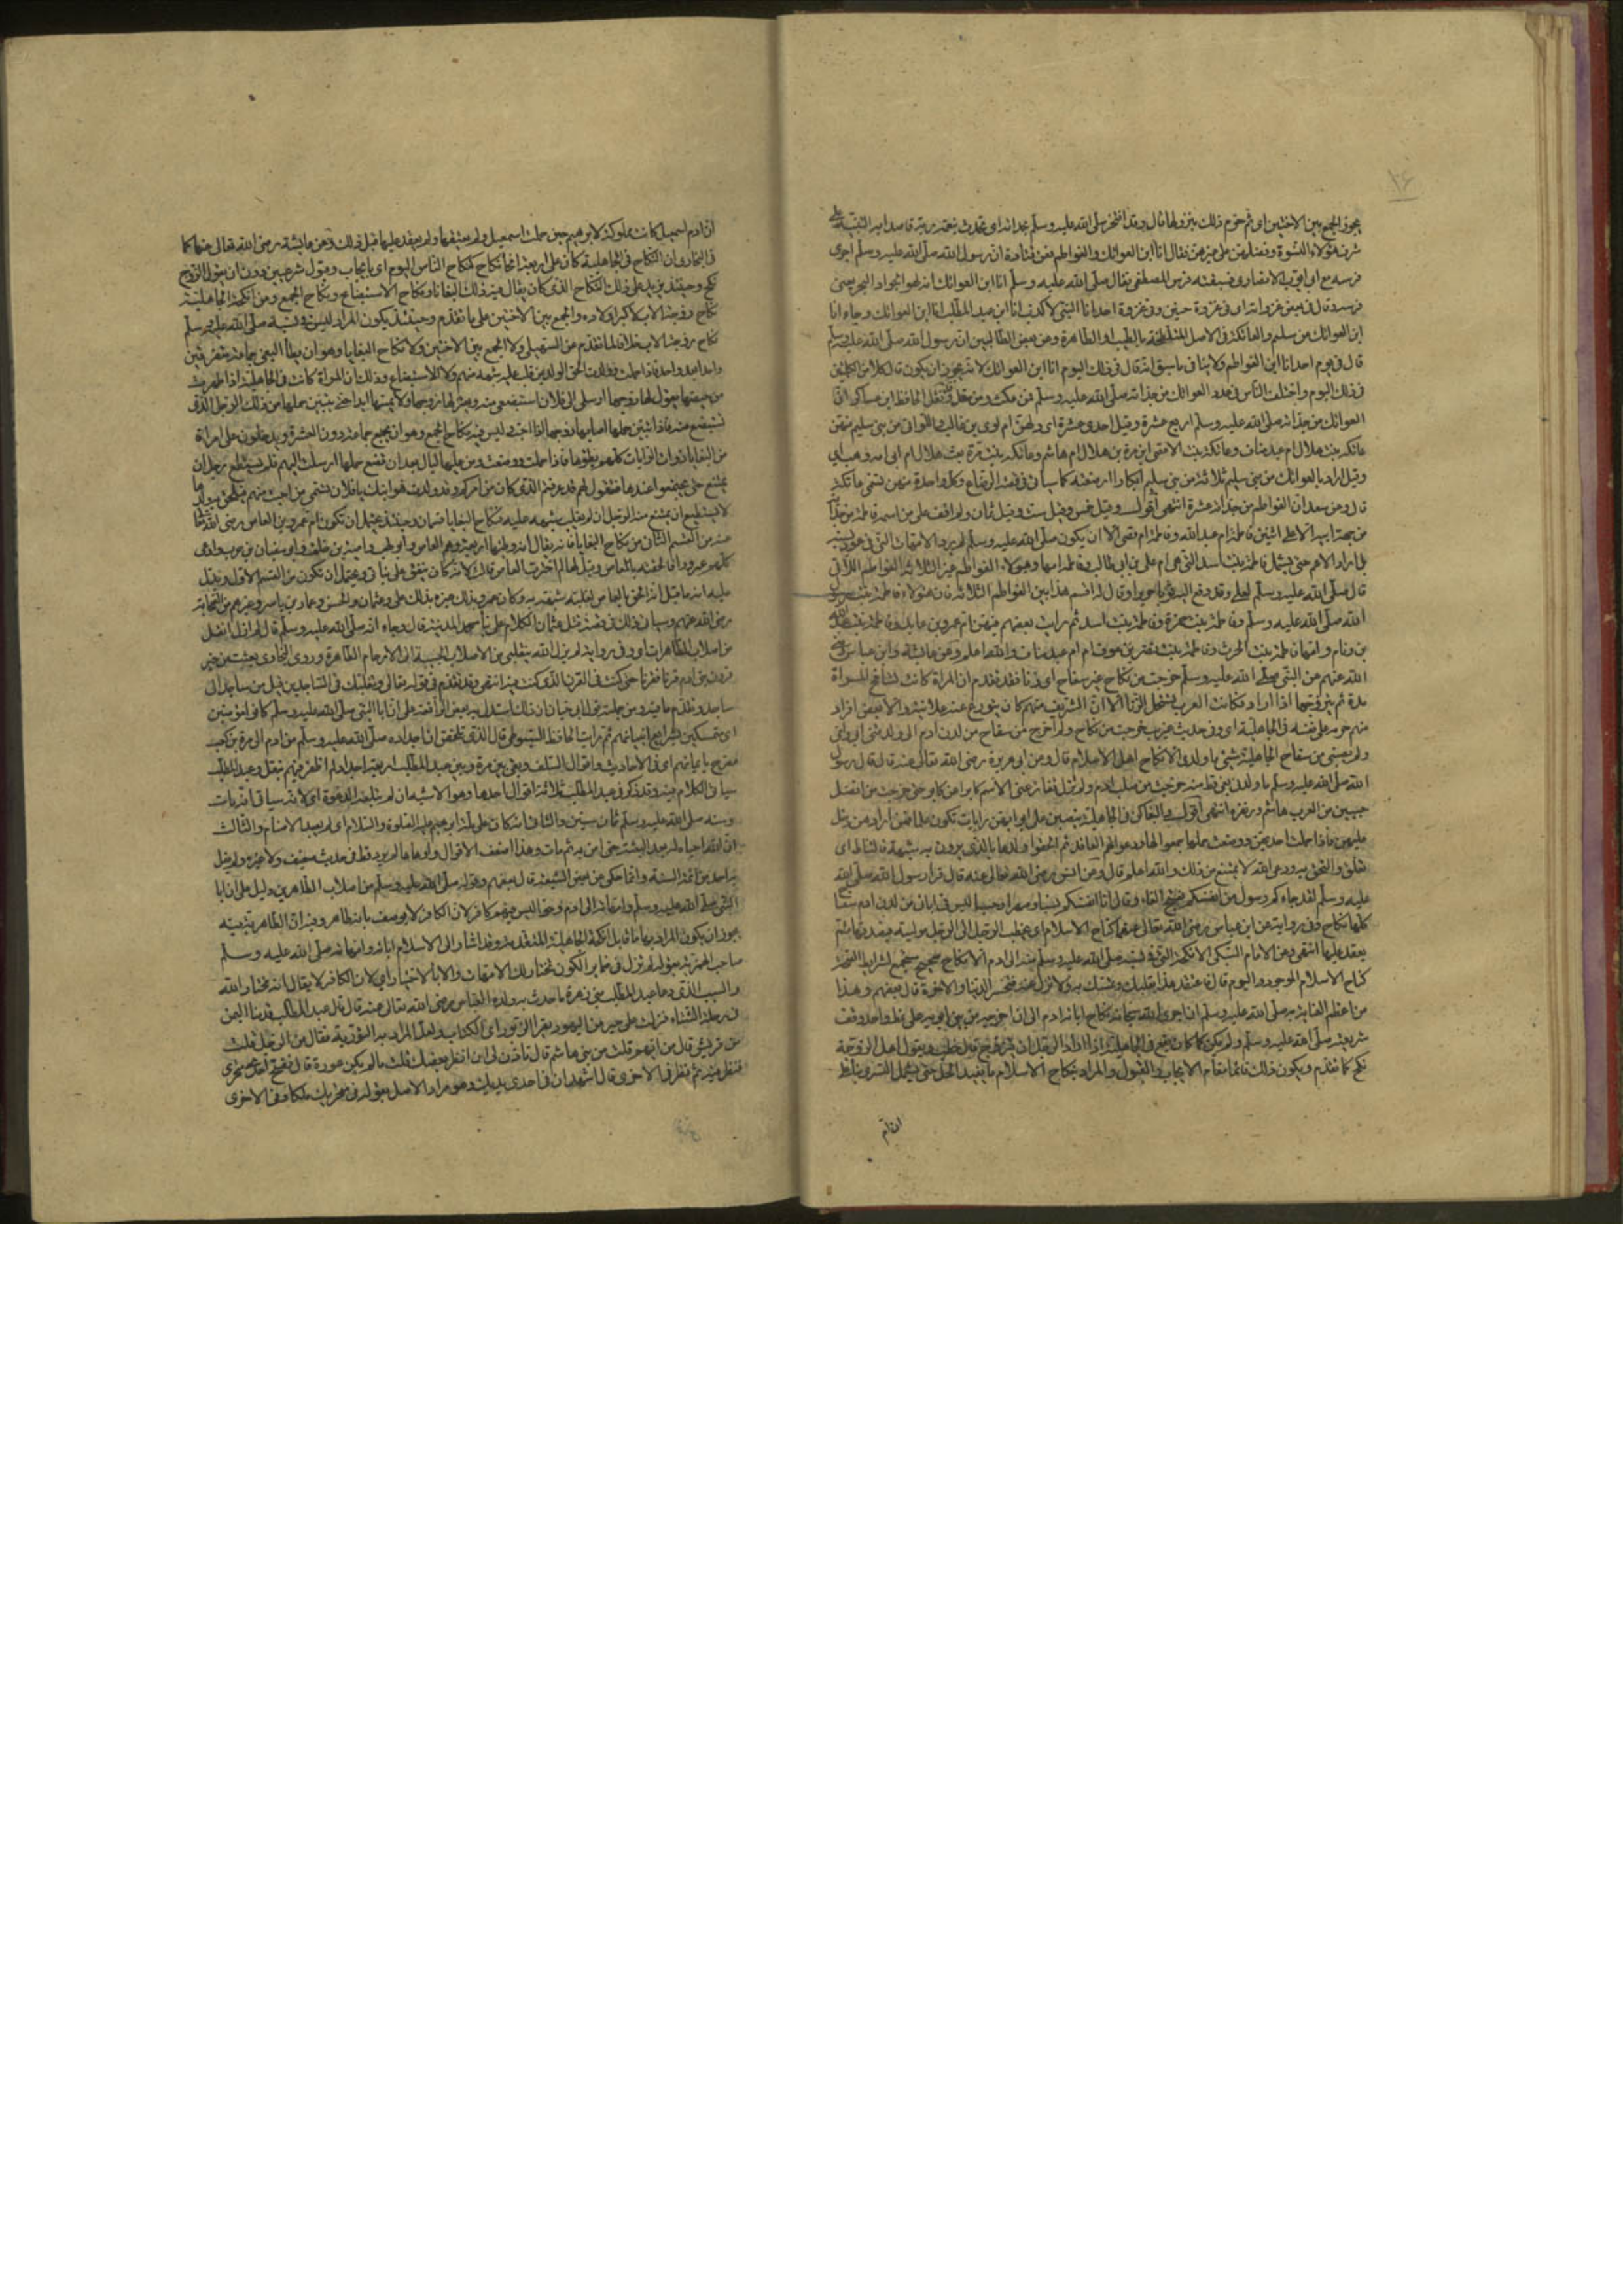 يجوز الجمع بين الاختين اى ثم حرم ذلك بنزولها قال وقد افتخر صلى الله عليه وسلم بجداته اى تحدث بنعمة ربه قاصدا به التنبيه على
شرف هؤلاء النسوة وفضلهن على غيرهن فقال انا ابن العواتك والفواطم فعن قتادة ان رسول الله صلى الله عليه وسلم اجرى
فرسه مع ابى ايوب الانصارى فسبقته فرس المصطفى فقال صلى الله عليه وسلم انا ابن العواتك انه لهو الجواد البحر يعنى
فرسه وقال فى بعض غزواته اى فى غزوة حنين وفى غزوة احد انا النبى لا كذب انا ابن عبد المطلب انا ابن العواتك وجاء انا
ابن العواتك من سليم والعاتكة فى الاصل المتلطخة بالطيب او الطاهرة وعن بعض الطالبيين ان رسول الله صلى الله عليه وسلم
قال فى يوم احد انا ابن الفواطم ولا ينافى ما سبق انه قال فى ذلك اليوم انا ابن العواتك لانه يجوز ان يكون قال كلا من الكلمتين
فى ذلك اليوم واختلف الناس فى عدد العواتك من جداته صلى الله عليه وسلم فمن مكثر ومن مقل فقد نقل الحافظ ابن عساكر ان
العواتك من جداته صلى الله عليه وسلم اربع عشرة وقيل احدى عشرة اى واولهن ام لوى بن غالب واللواتى من بنى سليم منهن
عاتكة بنت هلال ام عبد مناف وعاتكة بنت الاوقص ابن مرة بن هلال ام هاشم وعاتكة بنت مرة بن هلال ام ابى امه وهب اى
وقيل اراد بالعواتك من بنى سليم ثلاثة من بنى سليم ابكارا ارضعنه كما سياتى فى قصة الرضاع وكل واحدة منهن تسمى عاتكة
قال وعن سعد ان الفواطم من جداته عشرة انتهى اقول وقيل خمس وقيل ست وقيل ثمان ولم اقف على من اسمه فاطمة من جداته
من جهة ابيه الا على اثنتين فاطمة ام عبد الله وفاطمة ام قصى الا ان يكون صلى الله عليه وسلم لم يرد الامهات التى فى عمود نسبه
بل اراد الاعم حتى يشمل فاطمة بنت اسد التى هى ام على بن ابى طالب وفاطمة امها وهؤلاء الفواطم غير الثلاثة الفواطم اللاتى
قال صلى الله عليه وسلم لعلى وقد دفع اليه ثوبا حريرا وقال له اقسم هذا بين الفواطم الثلاثة فان هؤلاء فاطمة بنت رسول
الله صلى الله عليه وسلم وفاطمة بنت حمزة وفاطمة بنت اسد ثم رايت بعضهم
الله عنهم عن النبى صلى الله عليه وسلم خرجت من نكاح غير سفاح اى زنا فقد تقدم ان المراة كانت تسافح الرجل
مدة ثم يتزوجها اذا اراد فكانت العرب تستحل الزنا الا ان الشريف منهم كان يتورع عنه علانية والا بعض افراد
منهم حرمه على نفسه فى الجاهلية اى وفى حديث غريب خرجت من نكاح ولم اخرج من سفاح من لدن ادم الى ان ولدنى ابى وامى
ولم يصبنى من سفاح الجاهلية شئ ما ولدنى الا نكاح اهل الاسلام قال وعن ابى هريرة رضى الله تعالى عنه قال قال رسول
الله صلى الله عليه وسلم ما ولدتنى بغى قط منذ خرجت من صلب ادم ولم تزل تنازعنى الامم كابرا عن كابر حتى خرجت من افضل
حيين من العرب هاشم وزهرة انتهى اقول والبغايا كن فى الجاهلية ينصبن على ابوابهن رايات تكون علما فمن اراد من دخل
عليهن فاذا حملت احداهن ووضعت حملها جمعوا لها ودعوا لهم القافة ثم الحقوا ولدها بالذى يرون به شبها فالتاط اى
تعلق والتحق به ودعى ابنه لا يمتنع من ذلك والله اعلم قال وعن انس رضى الله تعالى عنه قال قرا رسول الله صلى الله
عليه وسلم لقد جاءكم رسول من انفسكم بفتح الفاء وقال انا انفسكم نسبا وصهرا وحسبا ليس فى ابائى من لدن ادم سفاح
كلها نكاح وفى رواية عن ابن عباس رضى الله تعالى عنهما كنكاح الاسلام اى يخطب الرجل الى الرجل موليته فيصدقها ثم
يعقد عليها انتهى وعن الامام السبكى الانكحة التى فى نسبه صلى الله عليه وسلم منه الى ادم كلها نكاح صحيح مستجمع لشرايط الصحة
كنكاح الاسلام الموجود اليوم قال فاعتقد هذا بقلبك وتمسك به ولا تزل عنه فتخسر الدنيا والاخرة قال بعضهم وهذا
من اعظم العناية به صلى الله عليه وسلم ان اجرى الله سبحانه نكاح ابائه من ادم الى ان اخرجه من بين ابويه على نمط واحد وفق
شريعته صلى الله عليه وسلم ولم يكن كما كان يقع فى الجاهلية اذا اراد الرجل ان يتزوج قال خطب ويقول اهل الزوجة
نكح كما تقدم ويكون ذلك قائما مقام الايجاب والقبول والمراد بنكاح الاسلام ما يفيد الحل حتى يشمل التسرى بناء على
ان ام
ان ام اسمعيل كانت مملوكة لابراهيم حين حملت باسمعيل ولم يعتقها ولم يعقد عليها قبل ذلك وعن عائشة رضى الله تعالى عنها كما
فى البخارى ان النكاح فى الجاهلية كان على اربعة انحاء نكاح كنكاح الناس اليوم اى بايجاب وقبول شرعيين دون ان يقول الزوج
نكاح زوجة الاب لاكبر اولاده والجمع بين الاختين على ما تقدم وحينئذ يكون المراد ليس فى نسبه صلى الله عليه وسلم
نكاح زوجة الاب خلافا لما تقدم عن السهيلى ولا الجمع بين الاختين ولا نكاح البغايا وهو ان يطا البغى جماعة متفرقين
واحدا بعد واحد فاذا حملت وولدت الحق الولد بمن غلب عليه شبهه منهم ولا الاستبضاع وذلك ان المراة كانت فى الجاهلية اذا طهرت
من حيضها يقول لها زوجها ارسلى الى فلان استبضعى منه ويعتزلها زوجها ولا يمسها ابدا حتى يتبين حملها من ذلك الرجل الذى
تستبضع منه فاذا تبين حملها اصابها زوجها اذا احب وليس فيه نكاح الجمع وهو ان يجتمع جماعة دون العشرة ويدخلون على امراة
من البغايا ذوات الرايات كلهم يطؤها فاذا حملت ووضعت ومر عليها ليال بعد ان تضع حملها ارسلت اليهم فلم يستطع رجل ان
يمتنع حتى يجتمعوا عندها فتقول لهم قد عرفتم الذى كان من امركم وقد ولدت فهو ابنك يا فلان تسمى من احبت منهم فيلحق به ولدها
لا يستطيع ان يمتنع منه الرجل ان لم يغلب شبهه عليه فنكاح البغايا قسمان وحينئذ يحتمل ان تكون ام عمرو بن العاص رضى الله تعالى
عنه من القسم الثانى من نكاح البغايا فانه يقال انه وطئها اربعة وهم العاص وابو لهب وامية بن خلف وابو سفيان بن حرب وادعى
كلهم عمروا فالحقته بالعاص وقيل لها لم اخترت العاص قالت لانه كان ينفق على بناتى ويحتمل ان تكون من القسم الاول ويدل
عليه انه ما قيل انه الحق بالعاص لغلبة شبهه به وكان عمرو بذلك عيره بذلك على وعثمان والحسن وعمار بن ياسر وغيرهم من الصحابة
رضى الله عنهم وسياتى ذلك فى قصة قتل عثمان الكلام على بناء مسجد المدينة قال وجاء انه صلى الله عليه وسلم قال لم ازل انقل
من اصلاب الطاهرات او وفى رواية لم يزل الله ينقلنى من الاصلاب الحسيبة الى الارحام الطاهرة وروى البخارى بعثت من خير
قرون بنى ادم قرنا فقرنا حتى كنت فى القرن الذى كنت فيه انتهى وقد تقدم فى قوله تعالى وتقلبك فى الساجدين قيل من ساجد الى
ساجد وتقدم ما فيه ومن جملته قول ابى حيان ان ذلك استدل به بعض الرافضة على ان اباء النبى صلى الله عليه وسلم كانوا مؤمنين
اى متمسكين بشرايع انبيائهم ثم رايت الحافظ السيوطى قال الذى تلخص ان اجداده صلى الله عليه وسلم من ادم الى مرة بن كعب
مصرح بايمانهم اى فى الاحاديث واقوال السلف وبقى بين مرة وبين عبد المطلب اربعة اجداد لم اظفر فيهم بنقل وعبد المطلب
سياتى الكلام فيه وقد ذكر فى عبد المطلب ثلاثة اقوال احدها وهو الاشبه انه لم تبلغه الدعوة اى لانه سياتى انه مات
وسنه صلى الله عليه وسلم ثمان سنين والثانى انه كان على ملة ابراهيم عليه الصلوة والسلام اى لم يعبد الاصنام والثالث
ان الله احياه له بعد البعثة حتى امن به ثم مات وهذا اضعف الاقوال واوهاها لم يرد قط فى حديث ضعيف ولا غيره ولم يقل
به احد من ائمة السنة وانما حكى عن بعض الشيعة قال بعضهم وقوله صلى الله عليه وسلم من اصلاب الطاهرين دليل على ان اباء
النبى صلى الله عليه وسلم وامهاته الى ادم وحوا ليس فيهم كافر لان الكافر لا يوصف بانه طاهر وفيه ان الطاهرية فيه
يجوز ان يكون المراد بها ما قابل انكحة الجاهلية المتقدمة وقد اشار الى اسلام ابائه وامهاته صلى الله عليه وسلم
صاحب الهمزية بقوله لم تزل فى ضماير الكون تختار لك الامهات والاباء لاختيار اى لان الكافر لا يقال انه مختار والله
والسبب الذى دعا عبد المطلب بنى زهرة ما حدث به ولده العباس رضى الله تعالى عنه قال قال عبد المطلب قدمنا اليمن
فى رحلة الشتاء فنزلت على حبر من اليهود يقرا الزبور اى الكتاب ولعل المراد به التورية فقال من الرجل قلت
من قريش قال من ايهم قلت من بنى هاشم قال تاذن لى ان انظر بعضك قلت ما لم يكن عورة قال ففتح احدى منخرى
فنظر فيه ثم نظر فى الاخرى قال اشهد ان فى احدى يديك وهو مراد الاصل بقوله فى منخريك ملكا وفى الاخرى